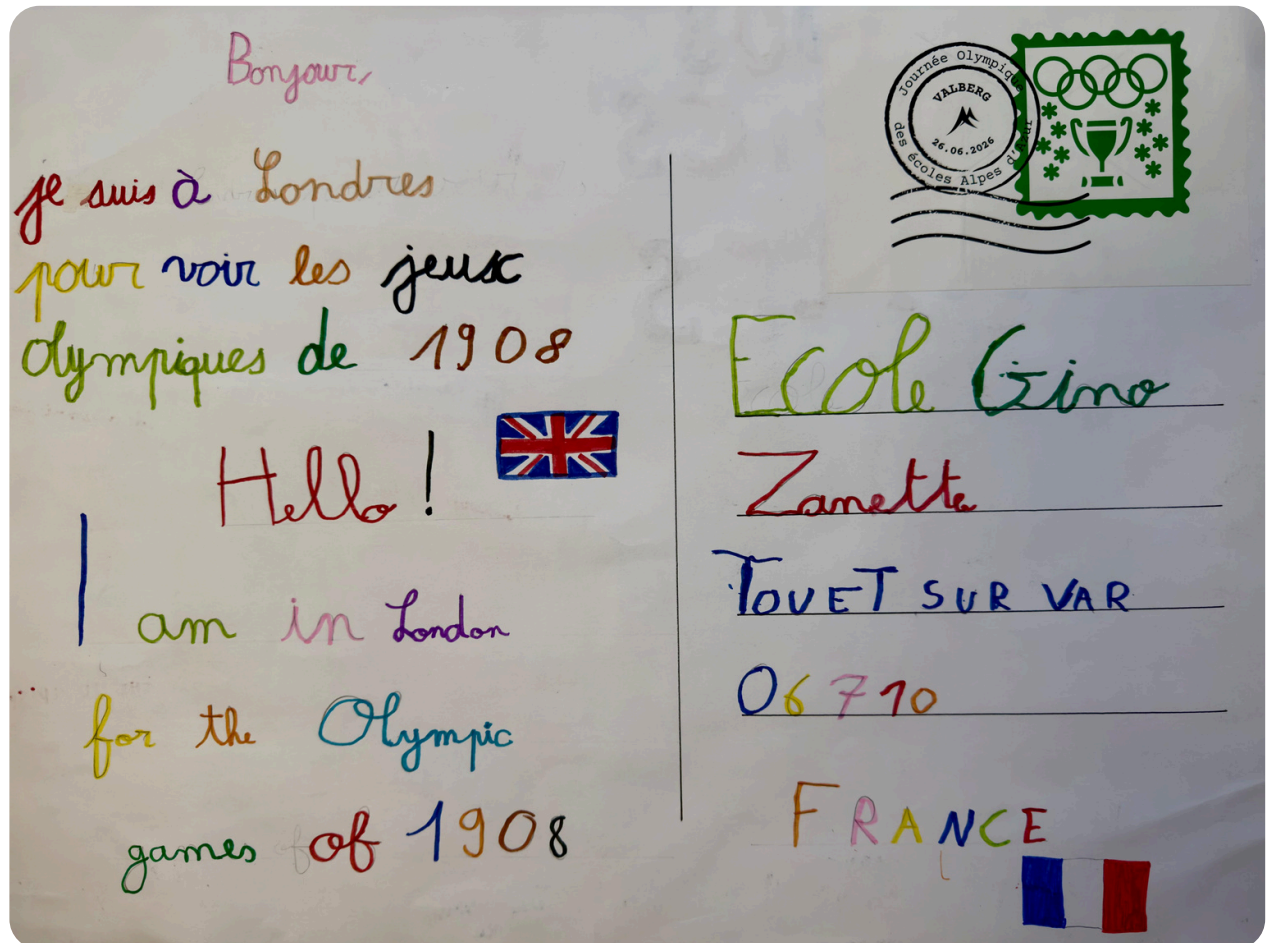 Bonjour,
je suis à Londres
pour voir les jeux
olympiques de 1908
Hello !
I am in London
for the Olympic
games of 1908
Journée Olympique
des écoles Alpes d'Azur
VALBERG
26.06.2026
Ecole Gino
Zanette
TOUET SUR VAR
06710
FRANCE